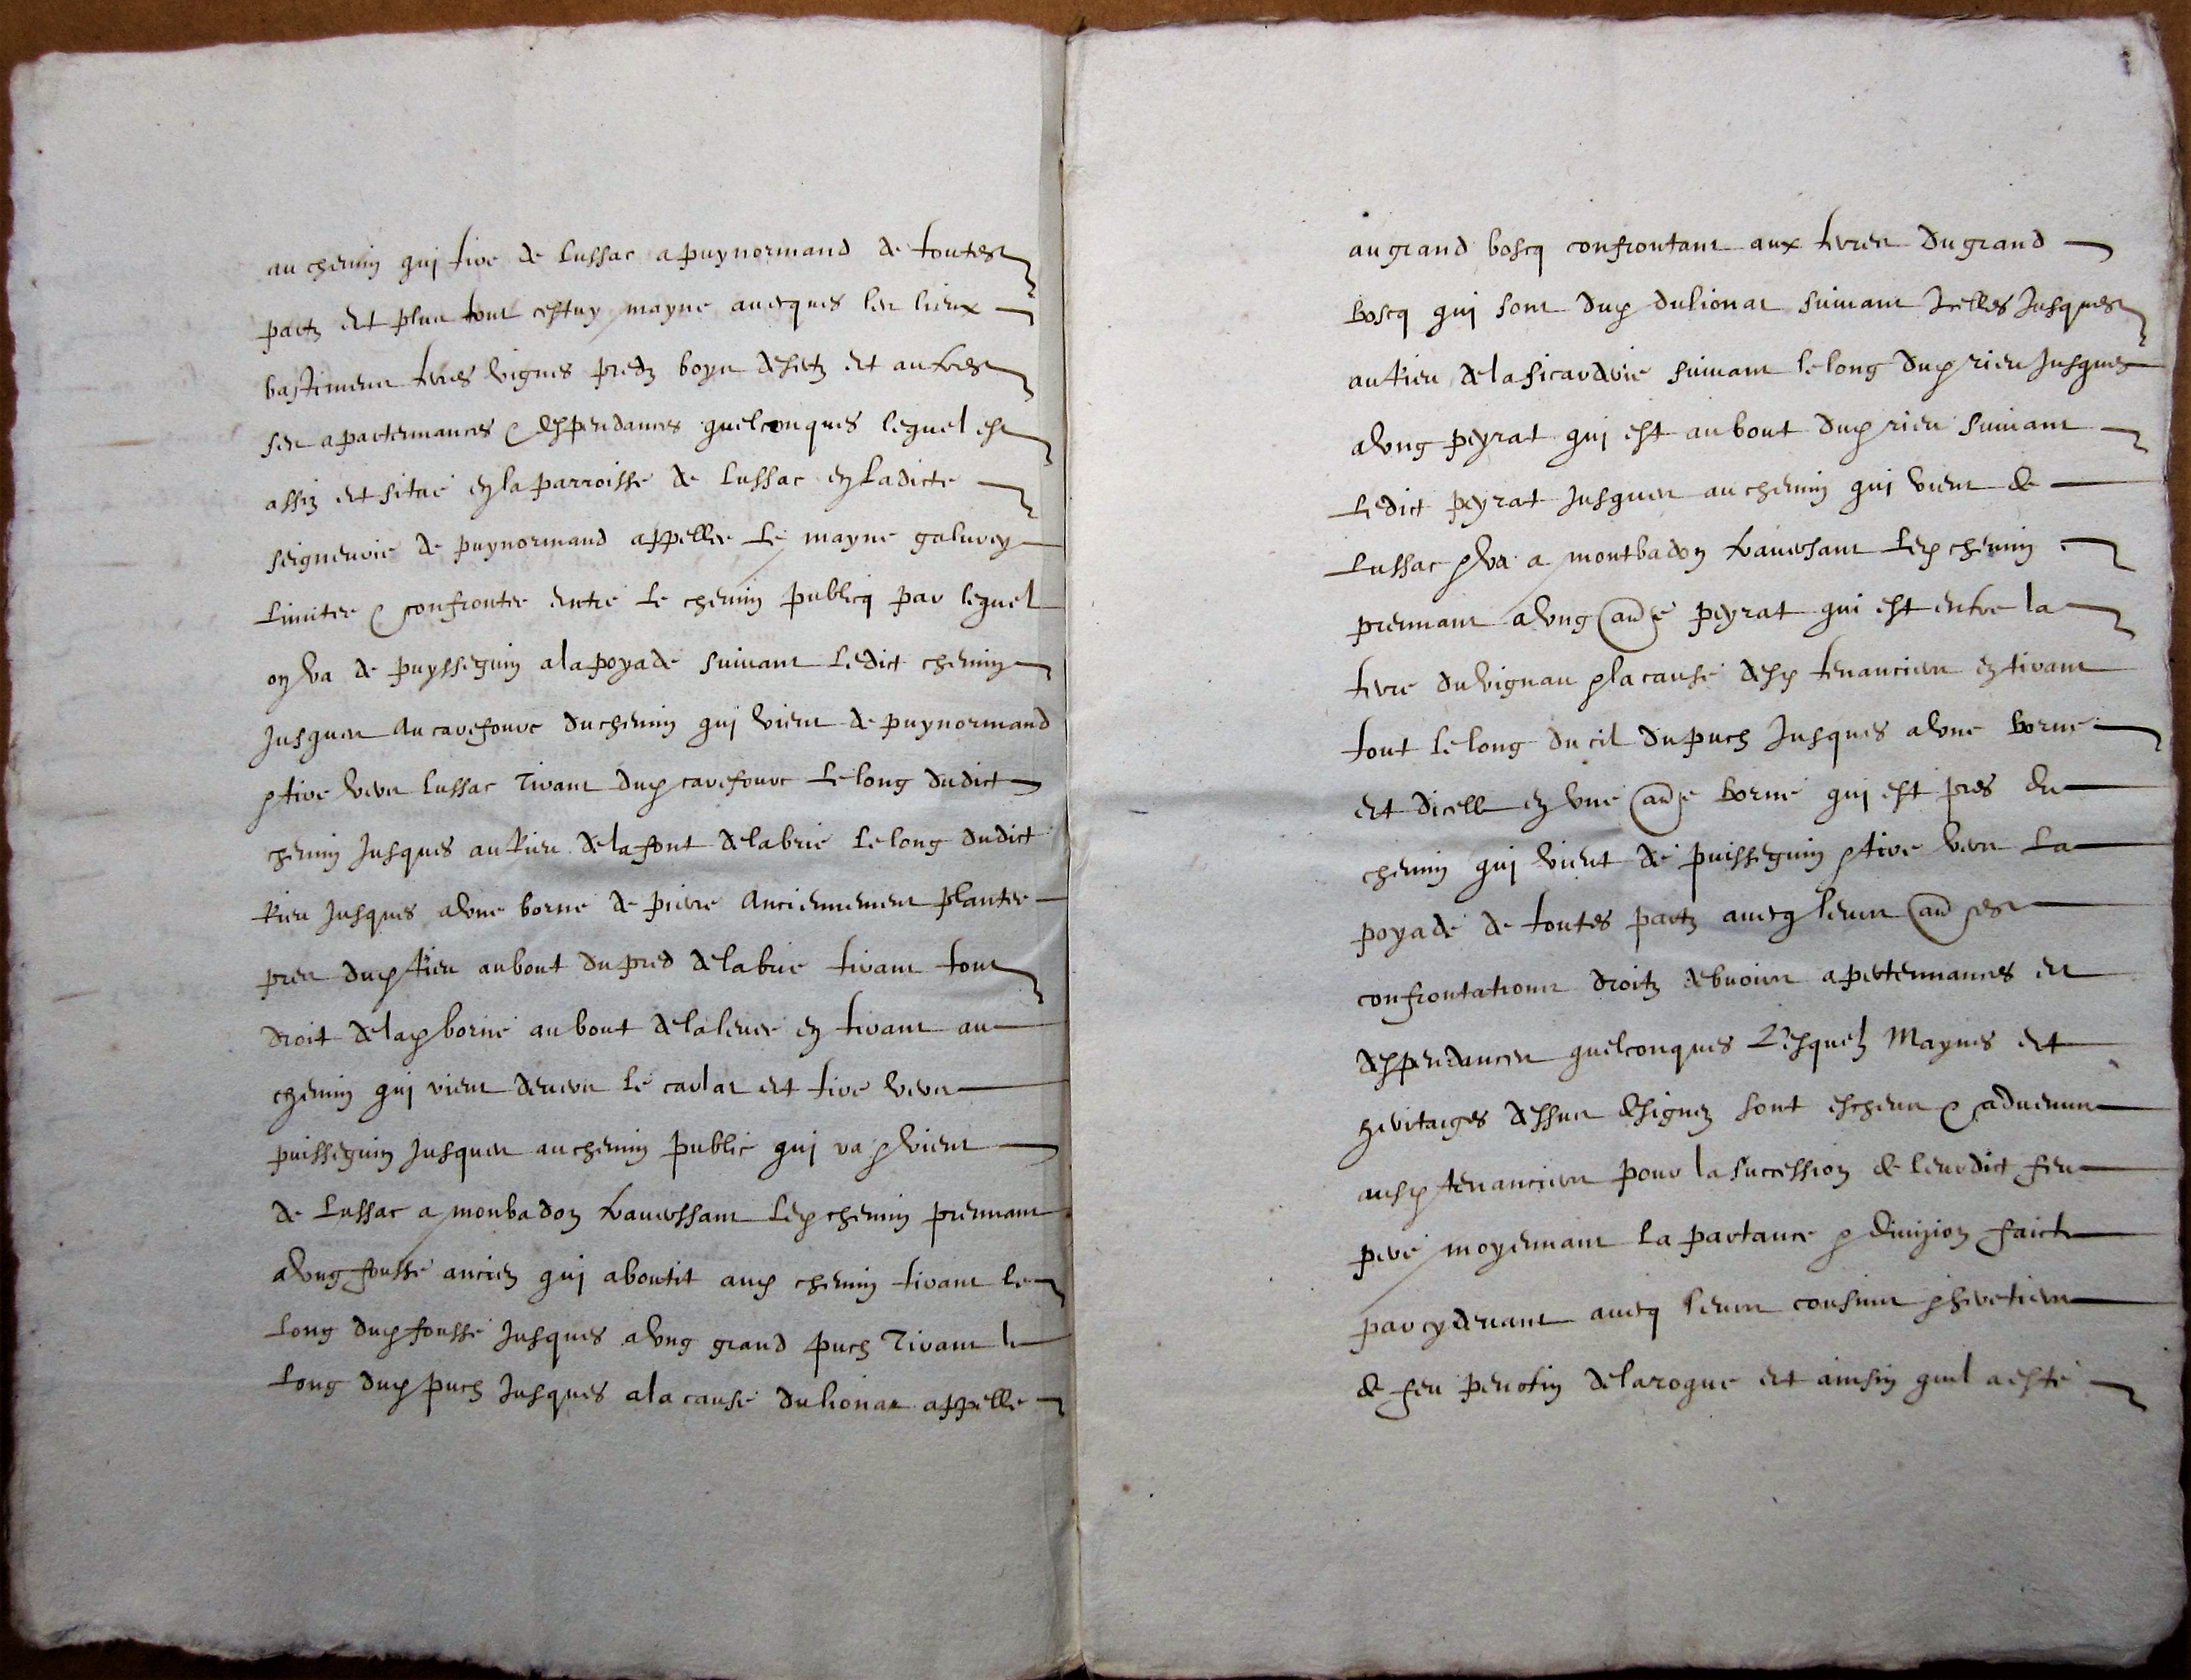 au chemin qui tire de lussac a puynormand de toutes
partz et plus tout cestuy mayne avecques les lieux
bastimens terres vignes predz boys desertz et autres
ses apartennances & despendances quelconques lequel est
assiz et situé en la parroisse de lussac en ladicte
seigneurie de puynormand appellee le mayne galurey
limitee & confrontee entre le chemin publicq par lequel
on va de puysseguin a la poyade suivant ledict chemin
jusques au carefourc du chemin qui vient de puynormand
& tire vers lussac tirant dud carefourc le long dudict
chemin jusques au rieu de la font de labrie le long dudict
rieu jusques a une borne de pierre anciennement plantee
pres dud rieu au bout du pred de labrie tirant tout
droit de lad borne au bout de la levee en tirant au
chemin qui vient devers le carlat et tire vers
puisseguin jusques au chemin public qui va & vient
de lussac a monbadon traverssant led chemin prennant
a ung fousse ancien qui aboutit aud chemin tirant le
long dud fousse jusques a ung grand puch tirant le
long dud puch jusques a la cause du lionat appelle
au grand boscq confrontant aux terres du grand
boscq qui sont dud du lionat suivant icelles jusques
au rieu de la sicarderie suivant le long dud rieu jusques
a ung peyrat qui est au bout dud rieu suivant
ledict peyrat jusques au chemin qui vient de
lussac & va a montbadon traversant led chemin
prennant a ung autre peyrat qui est entre la
terre du vignau & la cause desd tenanciers en tirant
tout le long du cil du puch jusques a une borne
et dicelle en une autre borne qui est pres du
chemin qui vient de puisseguin & tire vers la
poyade de toutes partz avecq leurs autres
confrontations droitz debvoirs apertennances et
despendances quelconques Lesquelz maynes et
heritaiges dessus designez sont escheus & advenuz
ausd tenanciers pour la succession de leurdict feu
pere moyennant la partance & division faicte
par cy devant avecq leurs cousins & heretiers
de feu perotin delarogue et ainsin quil a esté